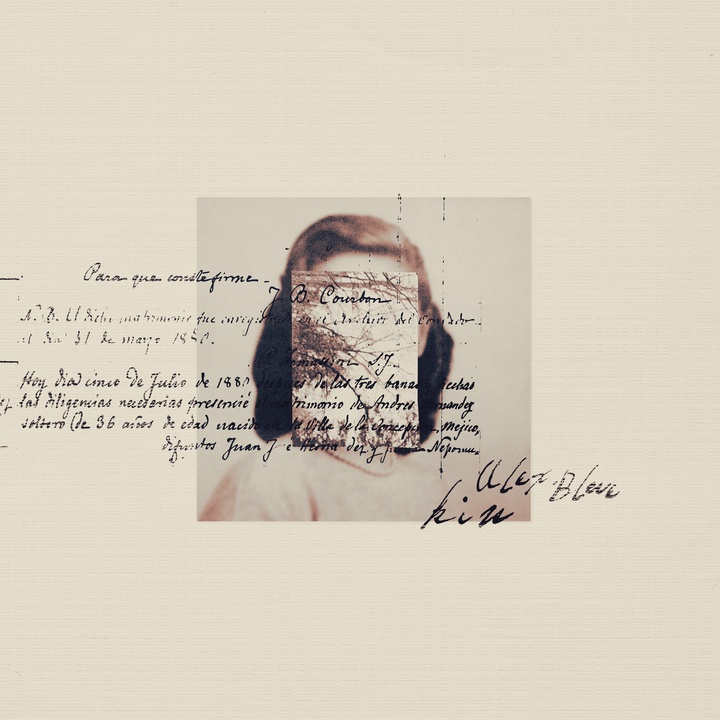 Para que conste firme
J. B. Courbon
N. B. El dicho matrimonio fue en el Archivo del
el dia 31 de marzo 18 0.
S.J.
Hoy dia cinco de Julio de 188 despues de las tres banas hechas
las diligencias necesarias presencié matrimonio de Andres
soltero (de 36 años de edad nacido en la Villa de la Concepcion, Mejico,
difuntos Juan J Nepomu
Alex Bleve
kin